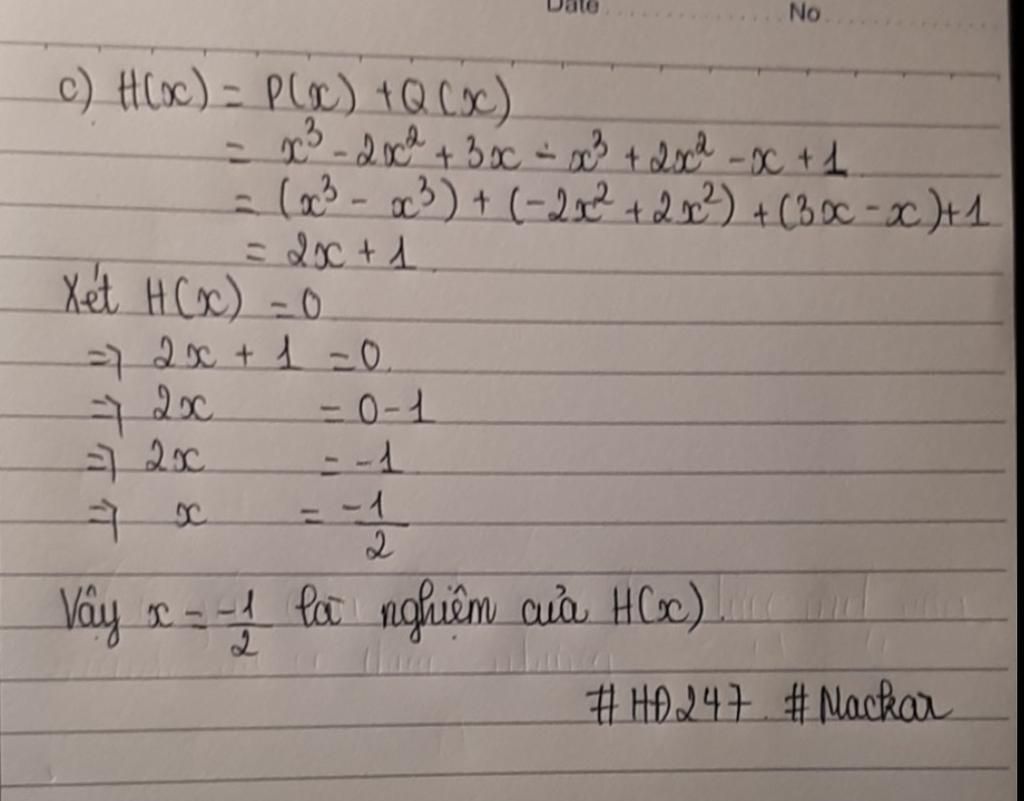 Date No
c) H(x) = P(x) + Q(x)
= x³ - 2x² + 3x - x³ + 2x² - x + 1
= (x³ - x³) + (-2x² + 2x²) + (3x - x) + 1
= 2x + 1
Xét H(x) = 0
=> 2x + 1 = 0
=> 2x = 0 - 1
=> 2x = -1
=> x = -1/2
Vậy x = -1/2 là nghiệm của H(x).
#HĐ247 #Mackar